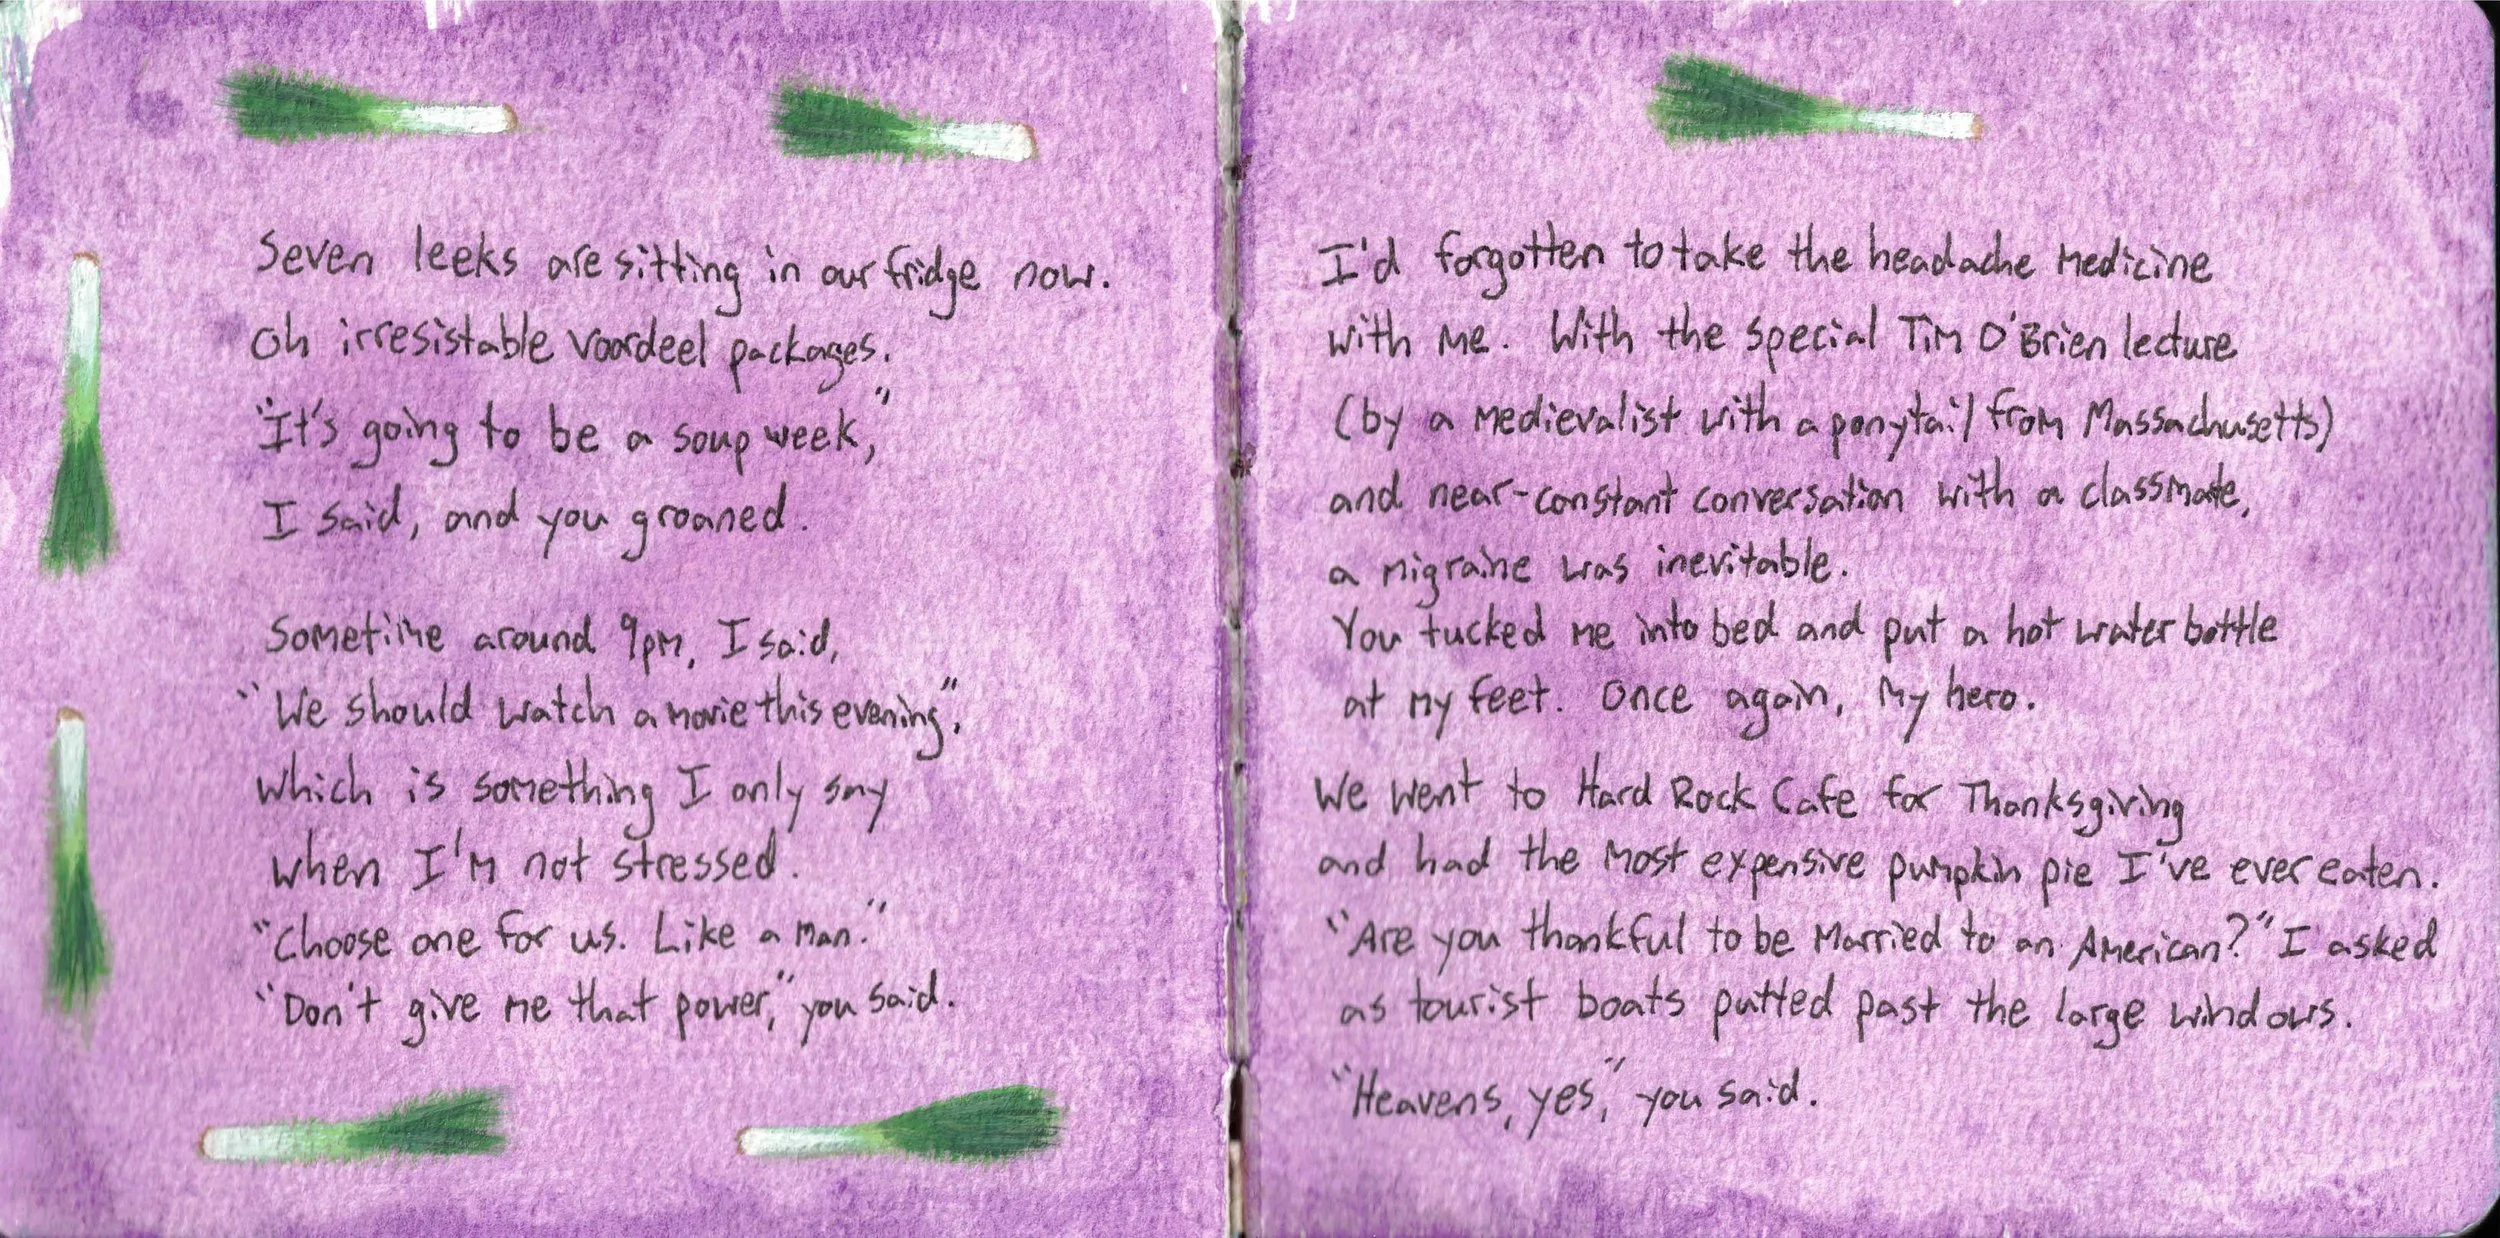 Seven leeks are sitting in our fridge now.
Oh irresistable Voordeel packages.
"It's going to be a soup week,"
I said, and you groaned.
Sometime around 9pm, I said,
"We should watch a movie this evening",
which is something I only say
when I'm not stressed.
"Choose one for us. Like a man."
"Don't give me that power," you said.
I'd forgotten to take the headache medicine
with me. With the special Tim O'Brien lecture
(by a medievalist with a ponytail from Massachusetts)
and near-constant conversation with a classmate,
a migraine was inevitable.
You tucked me into bed and put a hot water bottle
at my feet. Once again, my hero.
We went to Hard Rock Cafe for Thanksgiving
and had the most expensive pumpkin pie I've ever eaten.
"Are you thankful to be married to an American?" I asked
as tourist boats putted past the large windows.
"Heavens, yes," you said.